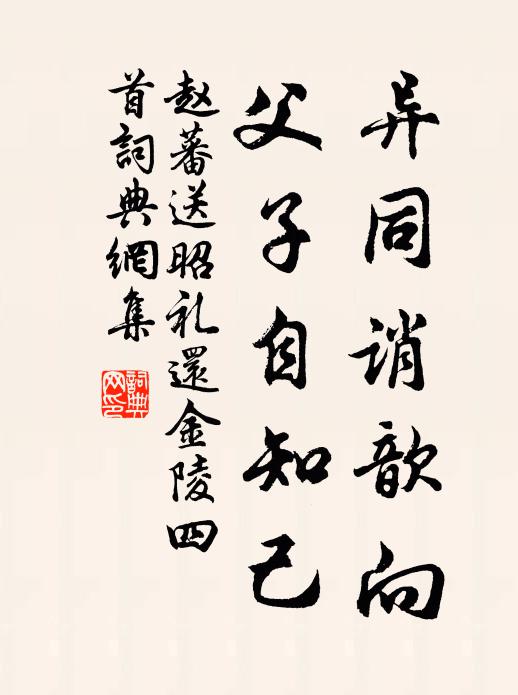 异同诮歆向
父子自知己
赵蕃送昭礼還金陵四
首詞典網集
詞典網印